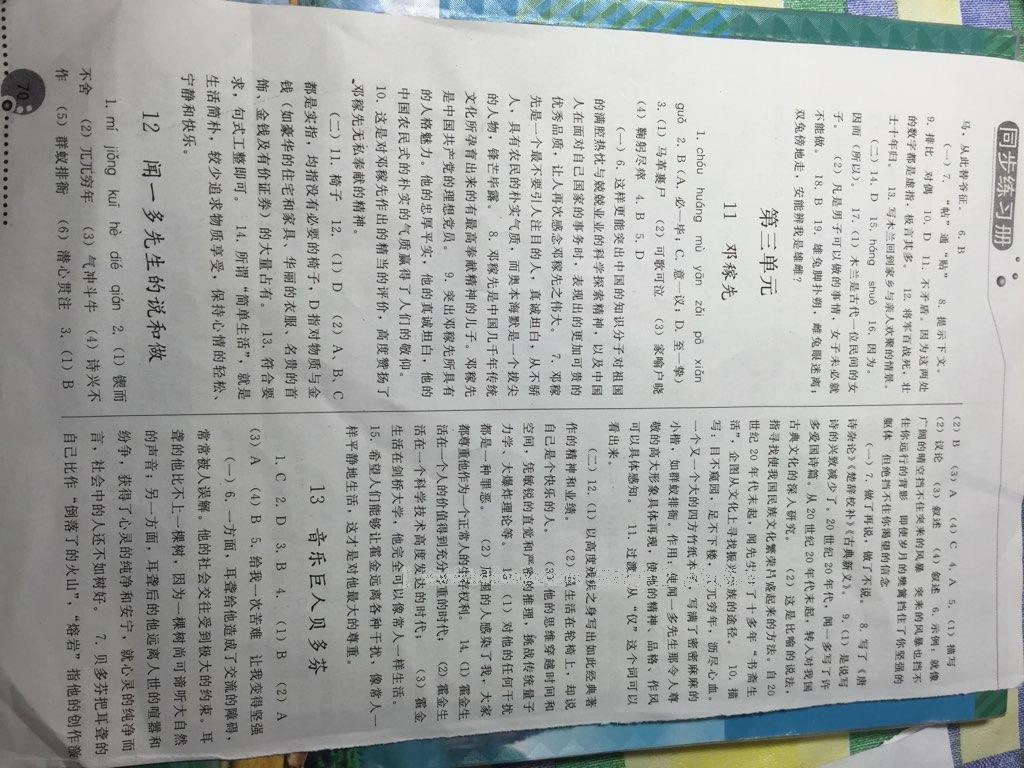 同步练习册
马，从此替爷征。 6. B
(一) 7. “帖”通“贴” 8. 提示下文。
9. 排比 对偶 10. D 11. 不矛盾，因为这两处
的数字都是虚指，极言其多。 12. 将军百战死，壮
士十年归。 13. 写木兰回到家乡与亲人欢聚的情景。
(二) 14. D 15. hóng shuò 16. 因为：
因而（所以）。 17. (1) 木兰是古代一位民间的女
子。 (2) 凡是男子可以做的事情，女子未必就
不能做。 18. B 19. 雄兔脚扑朔，雌兔眼迷离；
双兔傍地走，安能辨我是雄雌？
第三单元
11 邓稼先
1. chóu huáng mù yōn zǎi pō xiǎn
guǒ 2. B（A, 必—毕；C, 意—议；D, 至—挚）
3. (1) 马革裹尸 (2) 可歌可泣 (3) 家喻户晓
(4) 鞠躬尽瘁 4. B 5. D
(一) 6. 这样更能突出中国的知识分子对祖国
的满腔热忱与兢兢业业的科学探索精神，以及中国
人在面对自己国家的事务时，表现出的更加可贵的
优秀品质，让人再次感念邓稼先之伟大。 7. 邓稼
先是一个最不要引人注目的人，真诚坦白，从不骄
人，具有农民的朴实气质，而奥本海默是一个拔尖
的人物，锋芒毕露。 8. 邓稼先是中国几千年传统
文化所孕育出来的有最高奉献精神的儿子。邓稼先
是中国共产党的理想党员。 9. 突出邓稼先所具有
的人格魅力。他的忠厚平实，他的真诚坦白，他的
中国农民式的朴实的气质赢得了人们的敬仰。
10. 这是对邓稼先作出的精当的评价，高度赞扬了
邓稼先无私奉献的精神。
(二) 11. 椅子 12. (1) D (2) A、B、C
都是实指，均指没有必要的椅子，D 指对物质与金
钱（如豪华的住宅和家具、华丽的衣服、名贵的首
饰、金钱及有价证券）的大量占有。 13. 符合要
求，句式工整即可。 14. 所谓“简单生活”，就是
生活简朴，较少追求物质享受，保持心情的轻松、
宁静和快乐。
12 闻一多先生的说和做
1. mí jiǒng kuī hè dié qián 2. (1) 锲而
不舍 (2) 兀兀穷年 (3) 气冲斗牛 (4) 诗兴不
作 (5) 群蚁排衙 (6) 潜心贯注 3. (1) B
70
(2) B (3) A (4) C 4. A 5. (1) 描写
(2) 议论 (3) 叙述 (4) 叙述 6. 示例：就像
广阔的晴空挡不住突来的风暴 突来的风暴也挡不
住你远行的背影 即使岁月的樊篱挡住了你坚强的
躯体 但绝挡不住你渴望的信念
(一) 7. 做了再说，做了不说。 8. 写了《唐
诗杂论》《楚辞校补》《古典新义》。 9. (1) 是说写
诗的兴致减少了。20 世纪 20 年代，闻一多写了许
多爱国诗篇，从 20 世纪 20 年代末起，转入对我国
古典文化的深入研究。 (2) 这是比喻的说法，
指寻找使我国民族文化繁荣昌盛起来的方法。自 20
世纪 20 年代末起，闻先生过了十多年“书斋生
活”，企图从文化上寻找振兴民族的途径。 10. 描
写：目不窥园，足不下楼，兀兀穷年，沥尽心血。
小楷，如群蚁排衙。作用：使闻一多先生那令人尊
敬的高大形象具体再现，使他的精神、品格、作风
可以具体感知。 11. 过渡 从“仅”这个词可以
看出来。
(二) 12. (1) 以高度残疾之身写出如此经典著
作的精神和业绩。 (2) 生活在轮椅上，却说
自己是个快乐的人。 (3) 他的思维穿越时间和
空间，凭敏锐的直觉和严密的推理，挑战传统量子
力学、大爆炸理论等。 13. (1) 对他的任何干扰
都是一种罪恶。 (2) 周围的人感染了我，大家
都尊重他作为一个正常人的生存权利。 14. (1) 霍金生
活在一个人的价值得到充分尊重的时代； (2) 霍金生
活在一个科学技术高度发达的时代； (3) 霍金
生活在剑桥大学，他完全可以像常人一样生活。
15. 希望人们能够让霍金远离各种干扰，像常人一
样平静地生活，这才是对他最大的尊重。
13 音乐巨人贝多芬
1. C 2. D 3. B 4. (1) B (2) A
(3) A (4) B 5. 给我一次苦难 让我变得坚强
(一) 6. 一方面，耳聋给他造成了交流的障碍，
常常被人误解。他的社会交往受到极大的约束。耳
聋的他比不上一棵树，因为一棵树尚可谛听大自然
的声音；另一方面，耳聋后的他远离人世的喧嚣和
纷争，获得了心灵的纯净和安宁，就心灵的纯净而
言，社会中的人还不如树好。 7. 贝多芬把耳聋的
自己比作“倒落了的火山”，“熔岩”指他的创作激